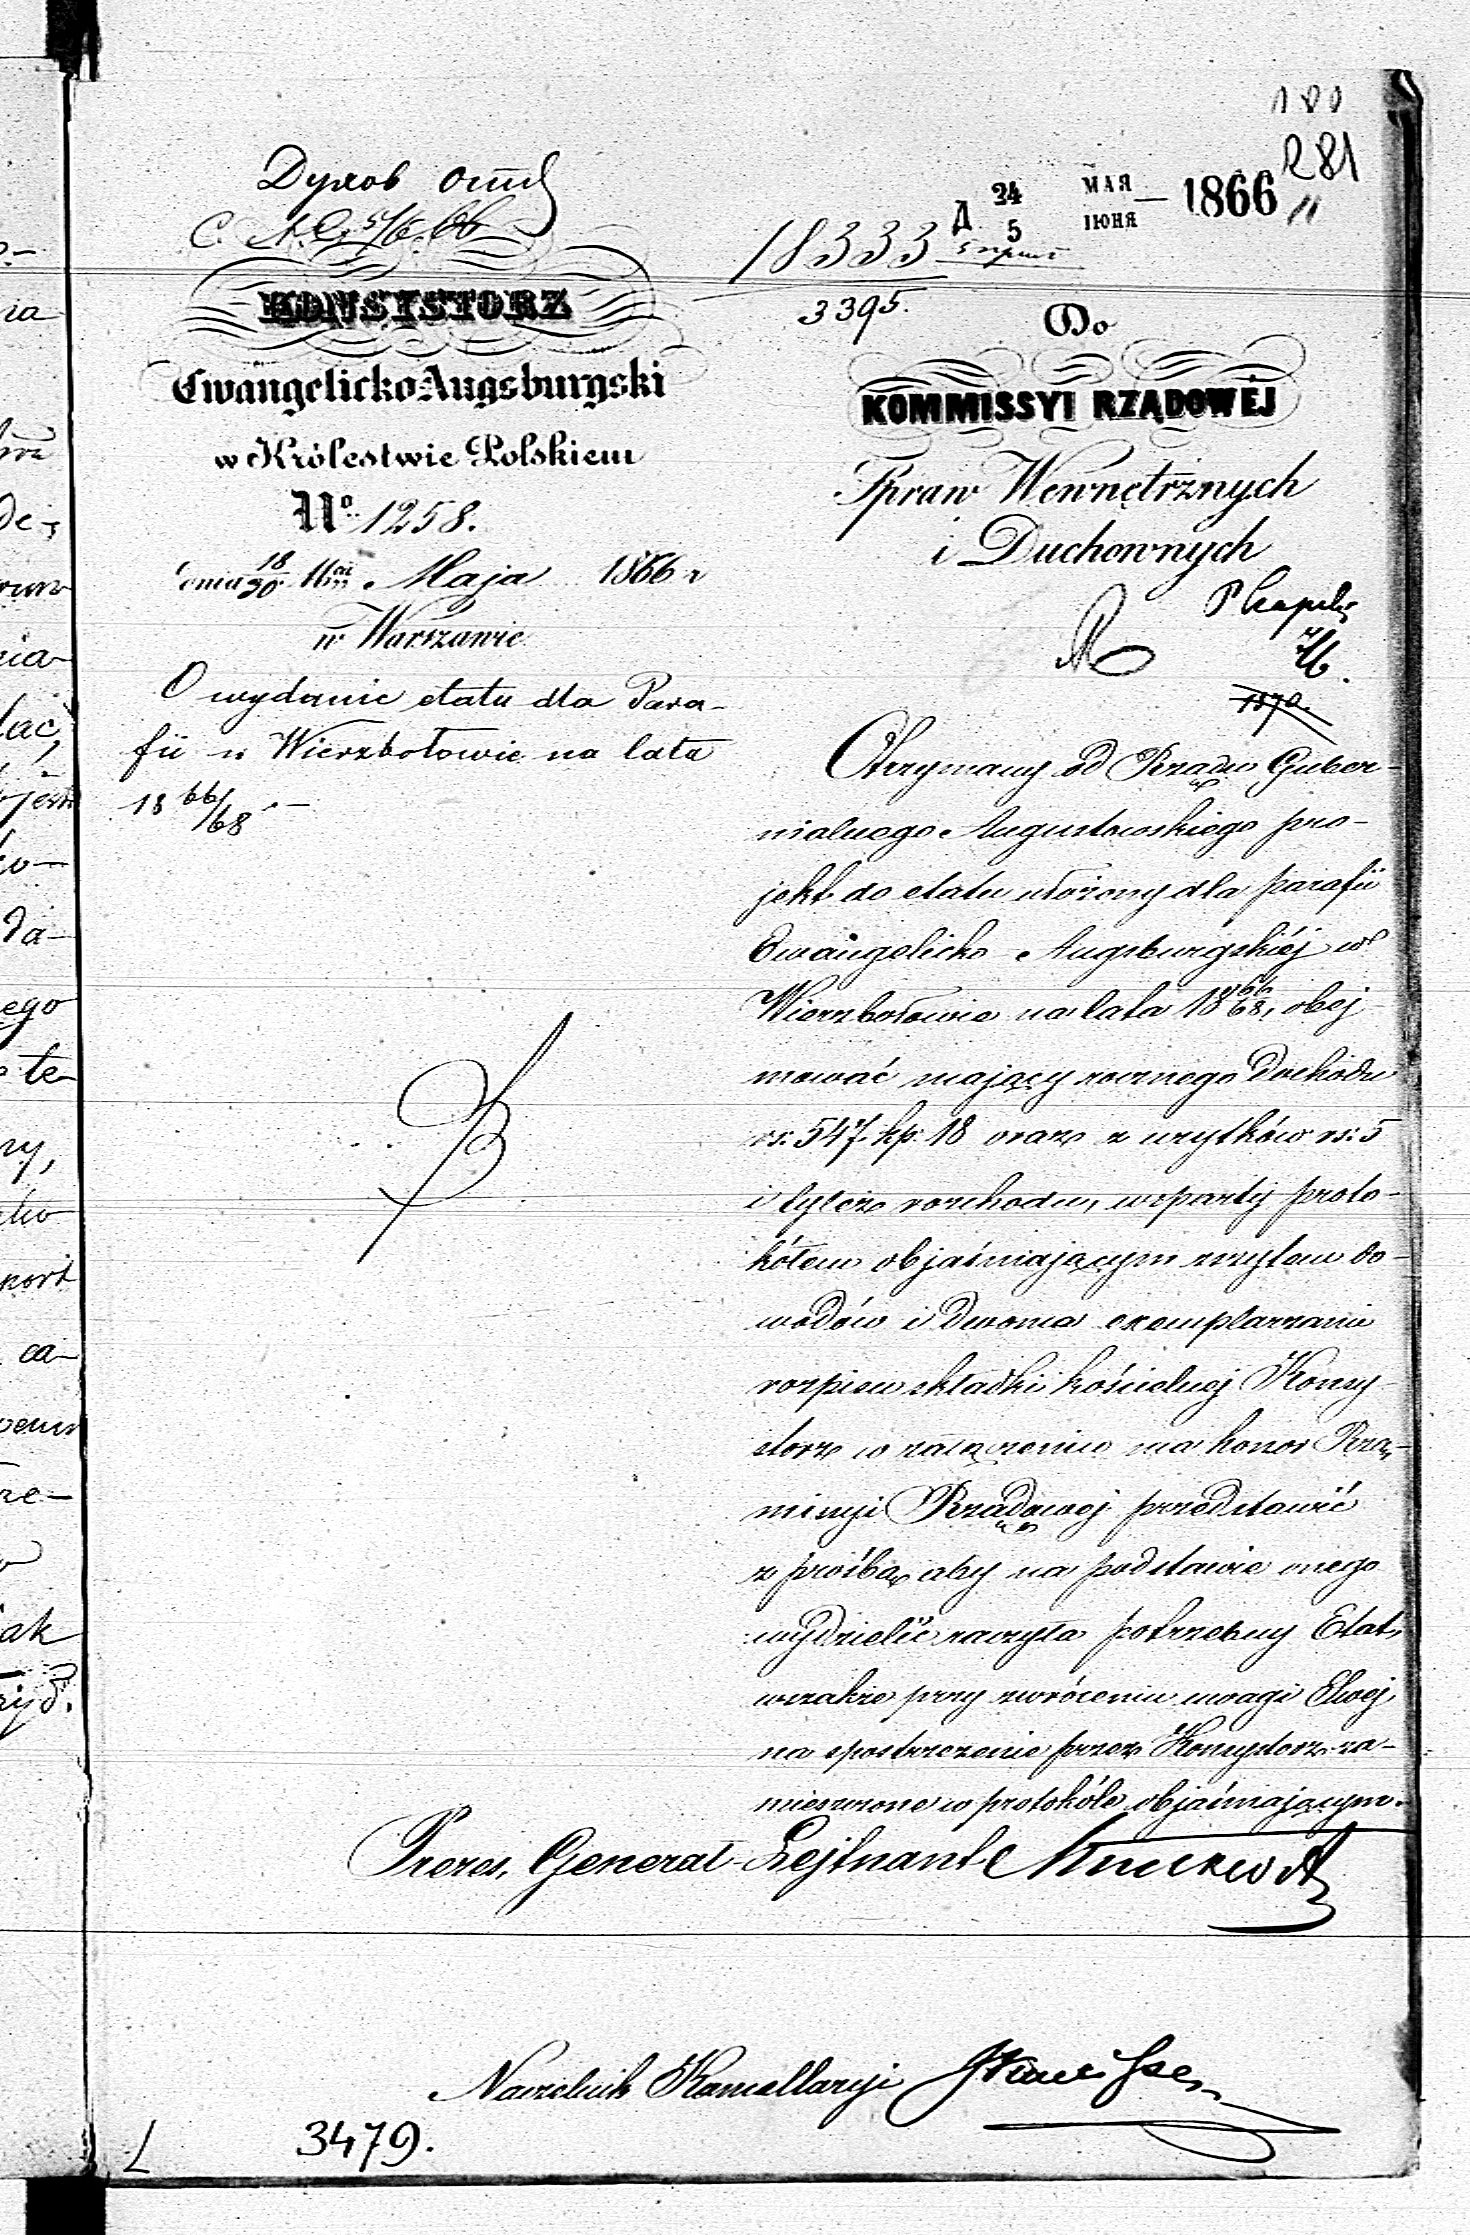 180
281
11
Духов отд
С. 5/6 66
Д 24 МАЯ 5 ІЮНЯ — 1866
18333
3395.
KONSYSTORZ
Ewangelicko-Augsburgski
w Królestwie Polskiem
No 1258.
dnia 18/30 Maja 1866 r
w Warszawie
O wydanie etatu dla Para-
fii w Wierzbołowie na lata
18 66/68 . —
Do
KOMMISSYI RZĄDOWÉJ
Spraw Wewnętrznych
i Duchownych
1870.
Otrzymany od Rządu Guber-
nialnego Augustowskiego pro-
jekt do etatu ułożony dla parafii
Ewangelicko-Augsburgskiéj w
Wierzbołowie na lata 18 66/68, obej
mować mający rocznego dochodu
rs: 547 kp. 18 oraz z użytków rs: 5
i tyleż rozchodu, wsparty proto-
kółem objaśniającym zszytem do-
wodów i dwoma exemplarzami
rozpisu składki kościelnej Konsy
storz w załączeniu ma honor Kom
missyi Rządowej przedstawić
z prośbą aby na podstawie onego
wydzielić raczyła potrzebny Etat,
wszakże przy zwróceniu uwagi Swej
na spostrzeżenie przez Konsystorz za-
mieszczone w protokóle objaśniającym.
Prezes, Generał-Lejtnant
Naczelnik Kancellaryi
3479.